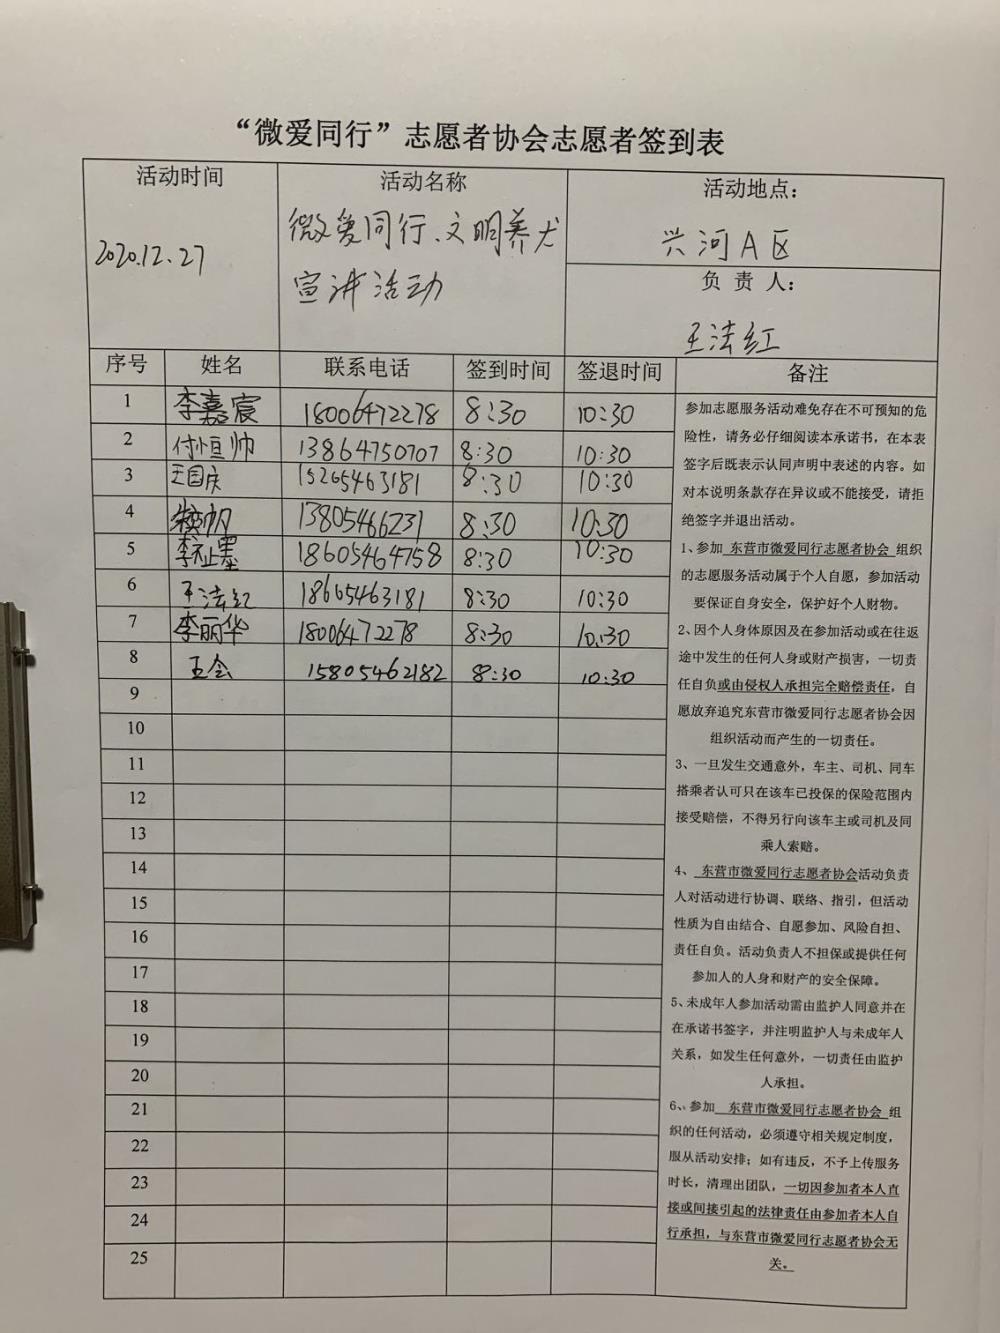 “微爱同行”志愿者协会志愿者签到表
活动时间
2020.12.27
活动名称
微爱同行、文明养犬
宣讲活动
活动地点：
兴河A区
负 责 人：
王法红
序号 姓名 联系电话 签到时间 签退时间 备注
1 李嘉宸 18006472278 8:30 10:30
2 付恒帅 13864750707 8:30 10:30
3 王国庆 15265463181 8:30 10:30
4 帆 13805466231 8:30 10:30
5 李祉墨 18605464758 8:30 10:30
6 王法红 18605463181 8:30 10:30
7 李丽华 18006472278 8:30 10:30
8 王会 15805462182 8:30 10:30
9
10
11
12
13
14
15
16
17
18
19
20
21
22
23
24
25
参加志愿服务活动难免存在不可预知的危
险性，请务必仔细阅读本承诺书，在本表
签字后既表示认同声明中表述的内容。如
对本说明条款存在异议或不能接受，请拒
绝签字并退出活动。
1、参加 东营市微爱同行志愿者协会 组织
的志愿服务活动属于个人自愿，参加活动
要保证自身安全，保护好个人财物。
2、因个人身体原因及在参加活动或在往返
途中发生的任何人身或财产损害，一切责
任自负或由侵权人承担完全赔偿责任，自
愿放弃追究东营市微爱同行志愿者协会因
组织活动而产生的一切责任。
3、一旦发生交通意外，车主、司机、同车
搭乘者认可只在该车已投保的保险范围内
接受赔偿，不得另行向该车主或司机及同
乘人索赔。
4、 东营市微爱同行志愿者协会活动负责
人对活动进行协调、联络、指引，但活动
性质为自由结合、自愿参加、风险自担、
责任自负。活动负责人不担保或提供任何
参加人的人身和财产的安全保障。
5、未成年人参加活动需由监护人同意并在
在承诺书签字，并注明监护人与未成年人
关系，如发生任何意外，一切责任由监护
人承担。
6、参加 东营市微爱同行志愿者协会 组
织的任何活动，必须遵守相关规定制度，
服从活动安排；如有违反，不予上传服务
时长，清理出团队，一切因参加者本人直
接或间接引起的法律责任由参加者本人自
行承担，与东营市微爱同行志愿者协会无
关。